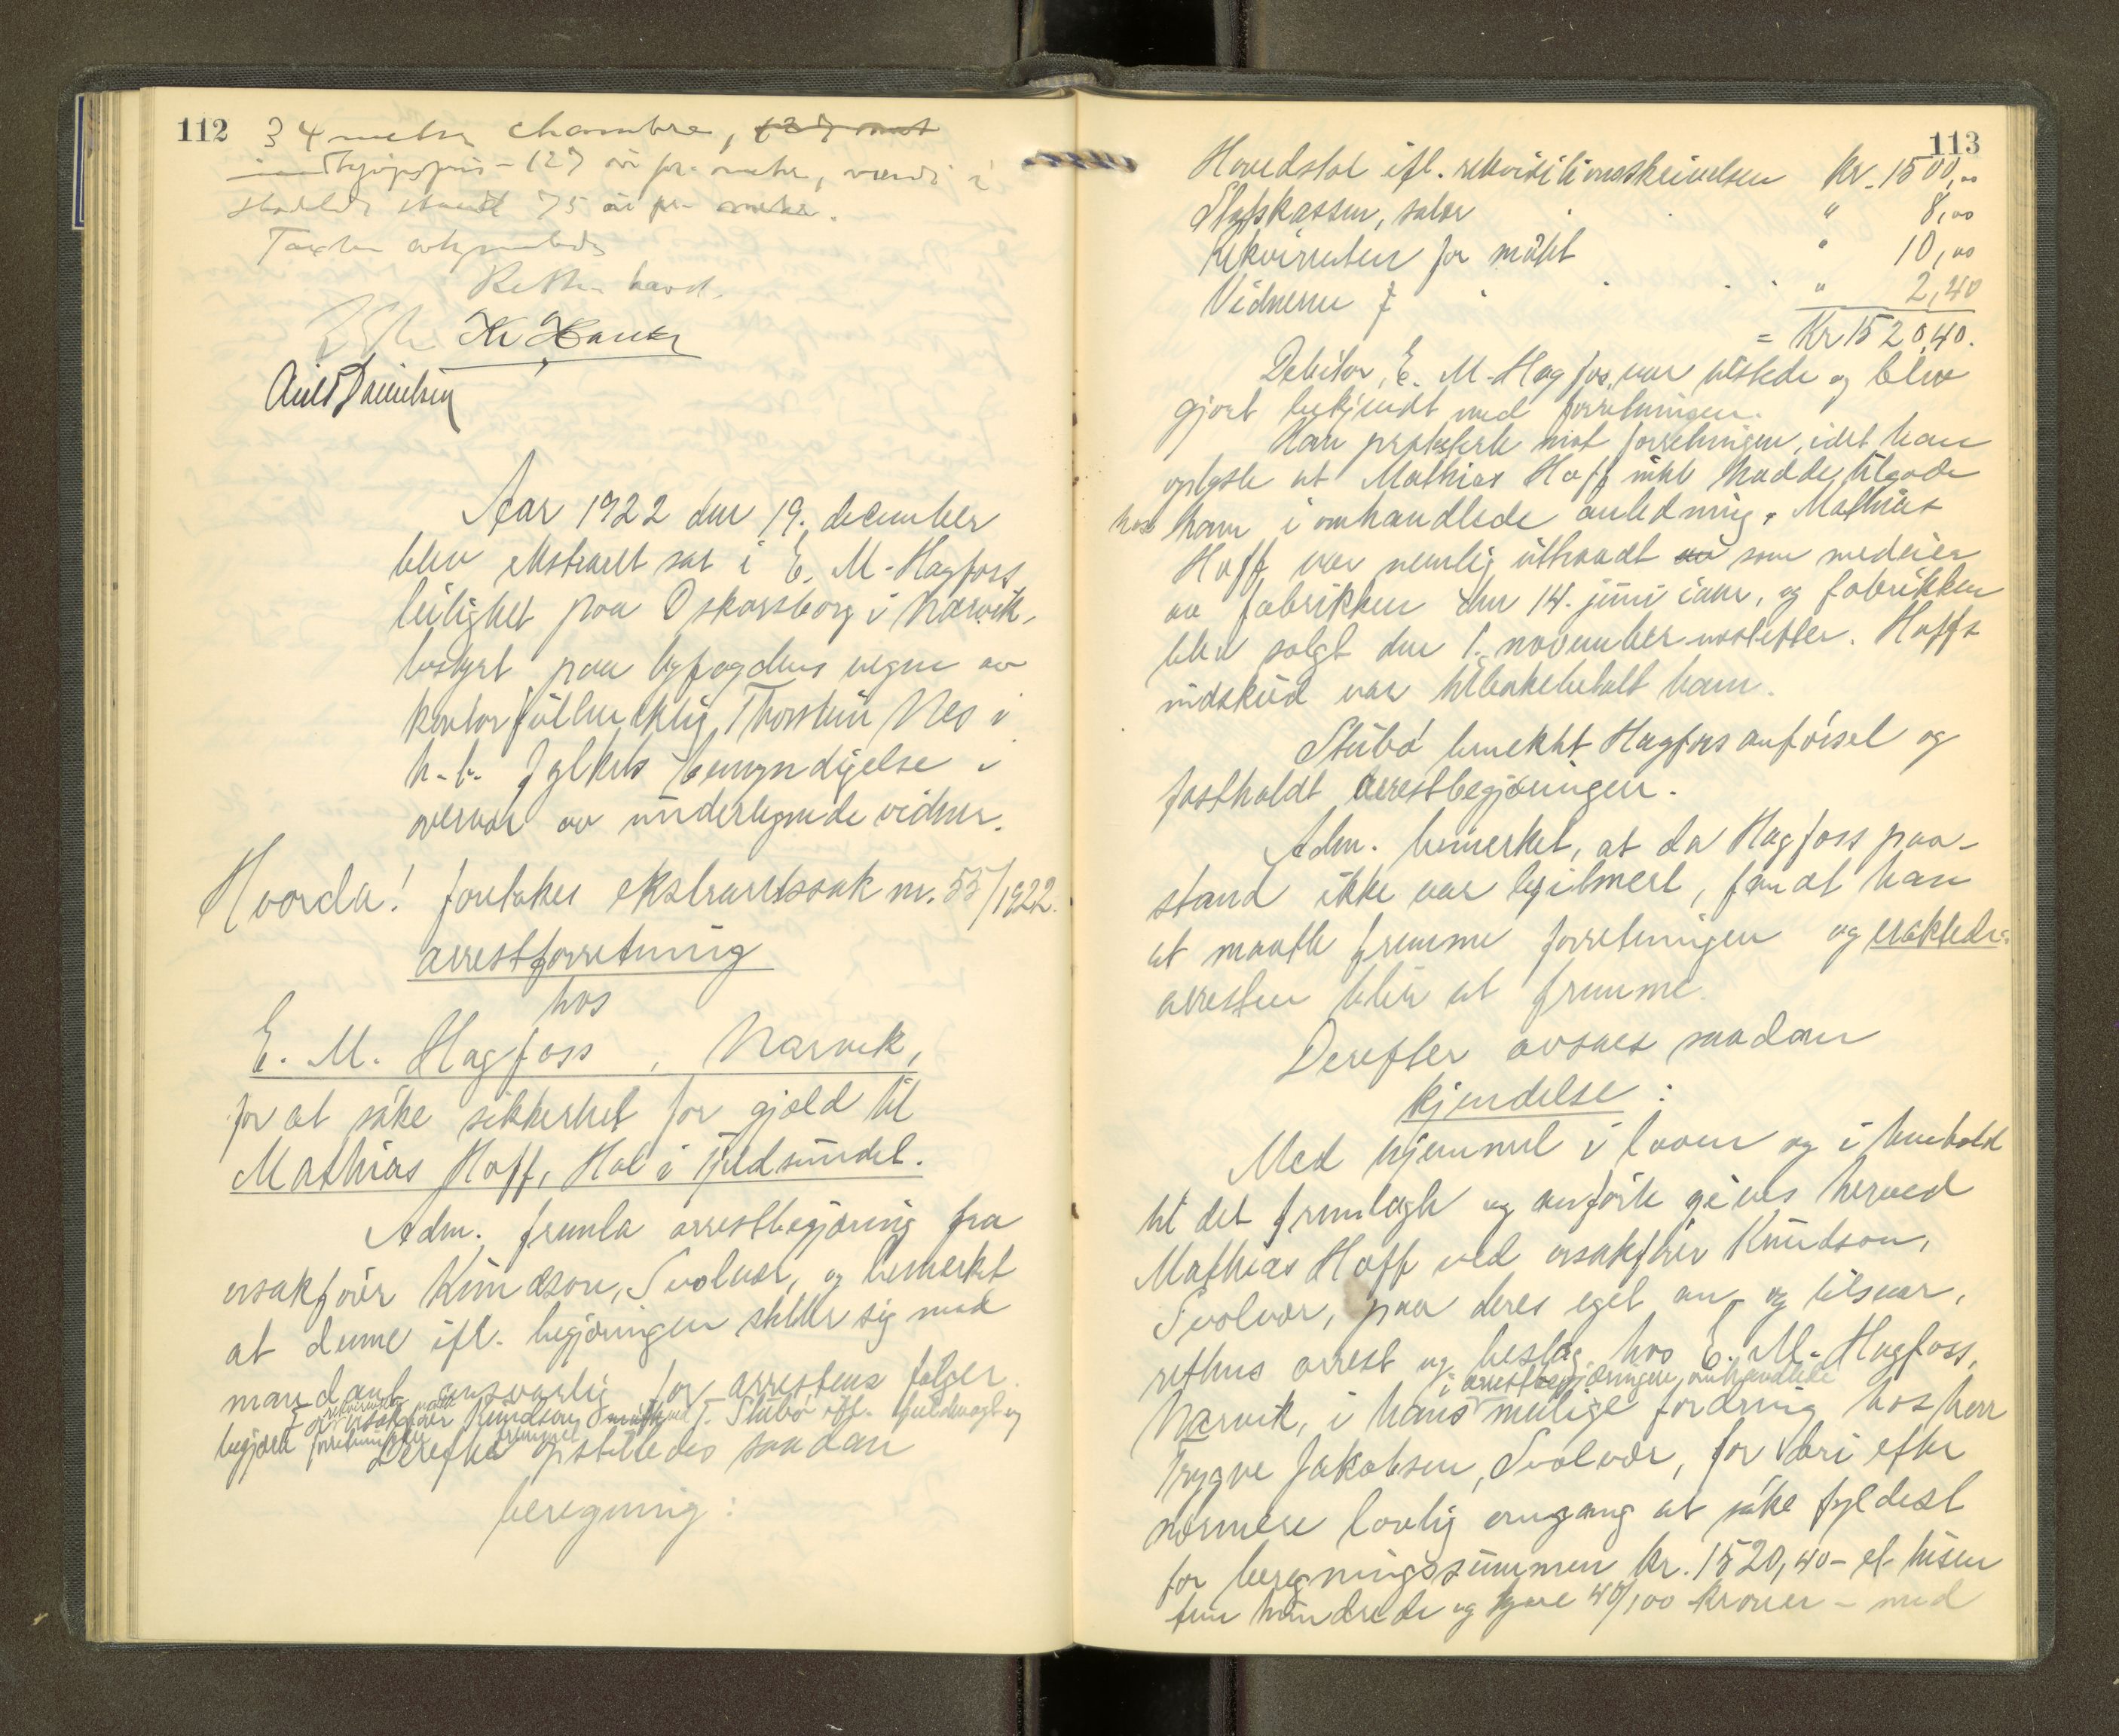 112
34 meter chambre, 127 
indkjøpspris - 127 øre pr. meter, værdi i
75 øre pr. meter.
Taxten
Retten hævet.
Kr Hauk
Danielsen
Aar 1922 den 19. december
blev ekstraret sat i E. M. Hagfoss
leilighet paa Oskarsborg i Narvik,
bestyrt paa byfogdens vegne av
kontorfuldmektig Thorstein Nes i
h. t. Fylkets bemyndigelse i
overvær av undertegnede vidner.
Hvorda! foretokes ekstraretssak nr. 55/1922.
arrestforretning
hos
E. M. Hagfoss, Narvik,
for at søke sikkerhet for gjæld til
Mathias Hoff, Hol i Tjeldsundet.
Adm. fremla arrestbegjæring fra
orsakfører Knudson, Svolvær, og bemerket
at denne ifl. begjæringen stiller sig med
mandant ansvarlig for arrestens følger.
For rekvirenten møtte
orsakfører Knudson ved J. Stubø ifl. fuldmagt og
begjærte forretningen fremmet.
Derefter opstilledes saadan
beregning:
113
Hovedstol ifl. rekvisitionsskrivelsen Kr. 1500,00
Statskassen, salær " 8,00
Rekvirenten for møtet " 10,00
Vidnerne " 2,40
= Kr 1520,40.
Debitor, E. M. Hagfos, var tilstede og blev
gjort bekjendt med forretningen.
Han protesterte mot forretningen, idet han
oplyste at Mathias Hoff intet hadde tilgode
hos ham i omhandlede anledning. Mathias
Hoff var nemlig uttraadt som medeier
av fabrikken den 14. juni iaar, og fabrikken
blev solgt den 1. november næstefter. Hoffs
indskud var tilbakebetalt ham.
Stubø benektet Hagfos anførsel og
fastholdt arrestbegjæringen.
Adm. bemerket, at da Hagfoss paa-
stand ikke var legitimert, fandt han
at maatte fremme forretningen og eraktedes
arresten blir at fremme.
Derefter avsaes saadan
kjendelse:
Med hjemmel i loven og i henhold
til det fremlagte og anførte gives herved
Mathias Hoff ved orsakfører Knudson,
Svolvær, paa deres eget an- og tilsvar,
rettens arrest og beslag hos E. M. Hagfoss,
i arrestbegjæringen omhandlede
Narvik, i hans mulige fordring hos herr
Trygve Jakobsen, Svolvær, for deri efter
nærmere lovlig omgang at søke fyldest
for beregningssummen kr. 1520,40 - et tusen
fem hundrede og tyve 40/100 kroner - med